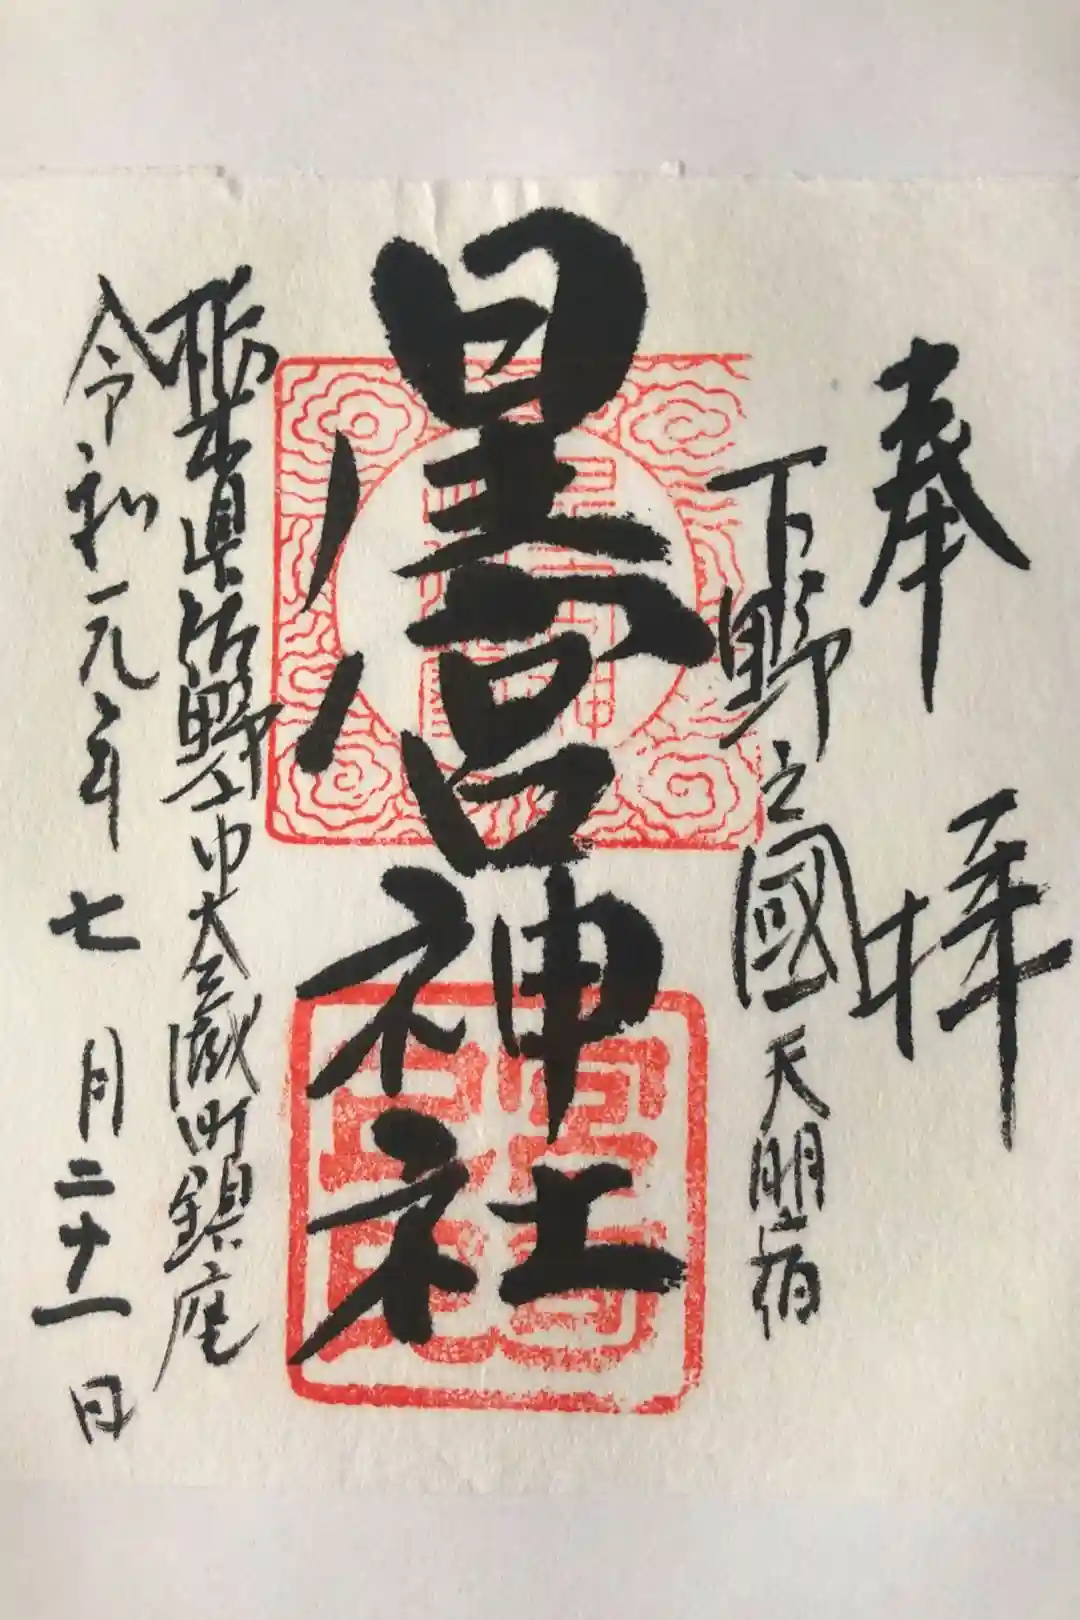 奉拝
下野之國天明宿
星宮神社
栃木県佐野市大蔵町鎮座
令和元年七月二十一日
宮司
之印